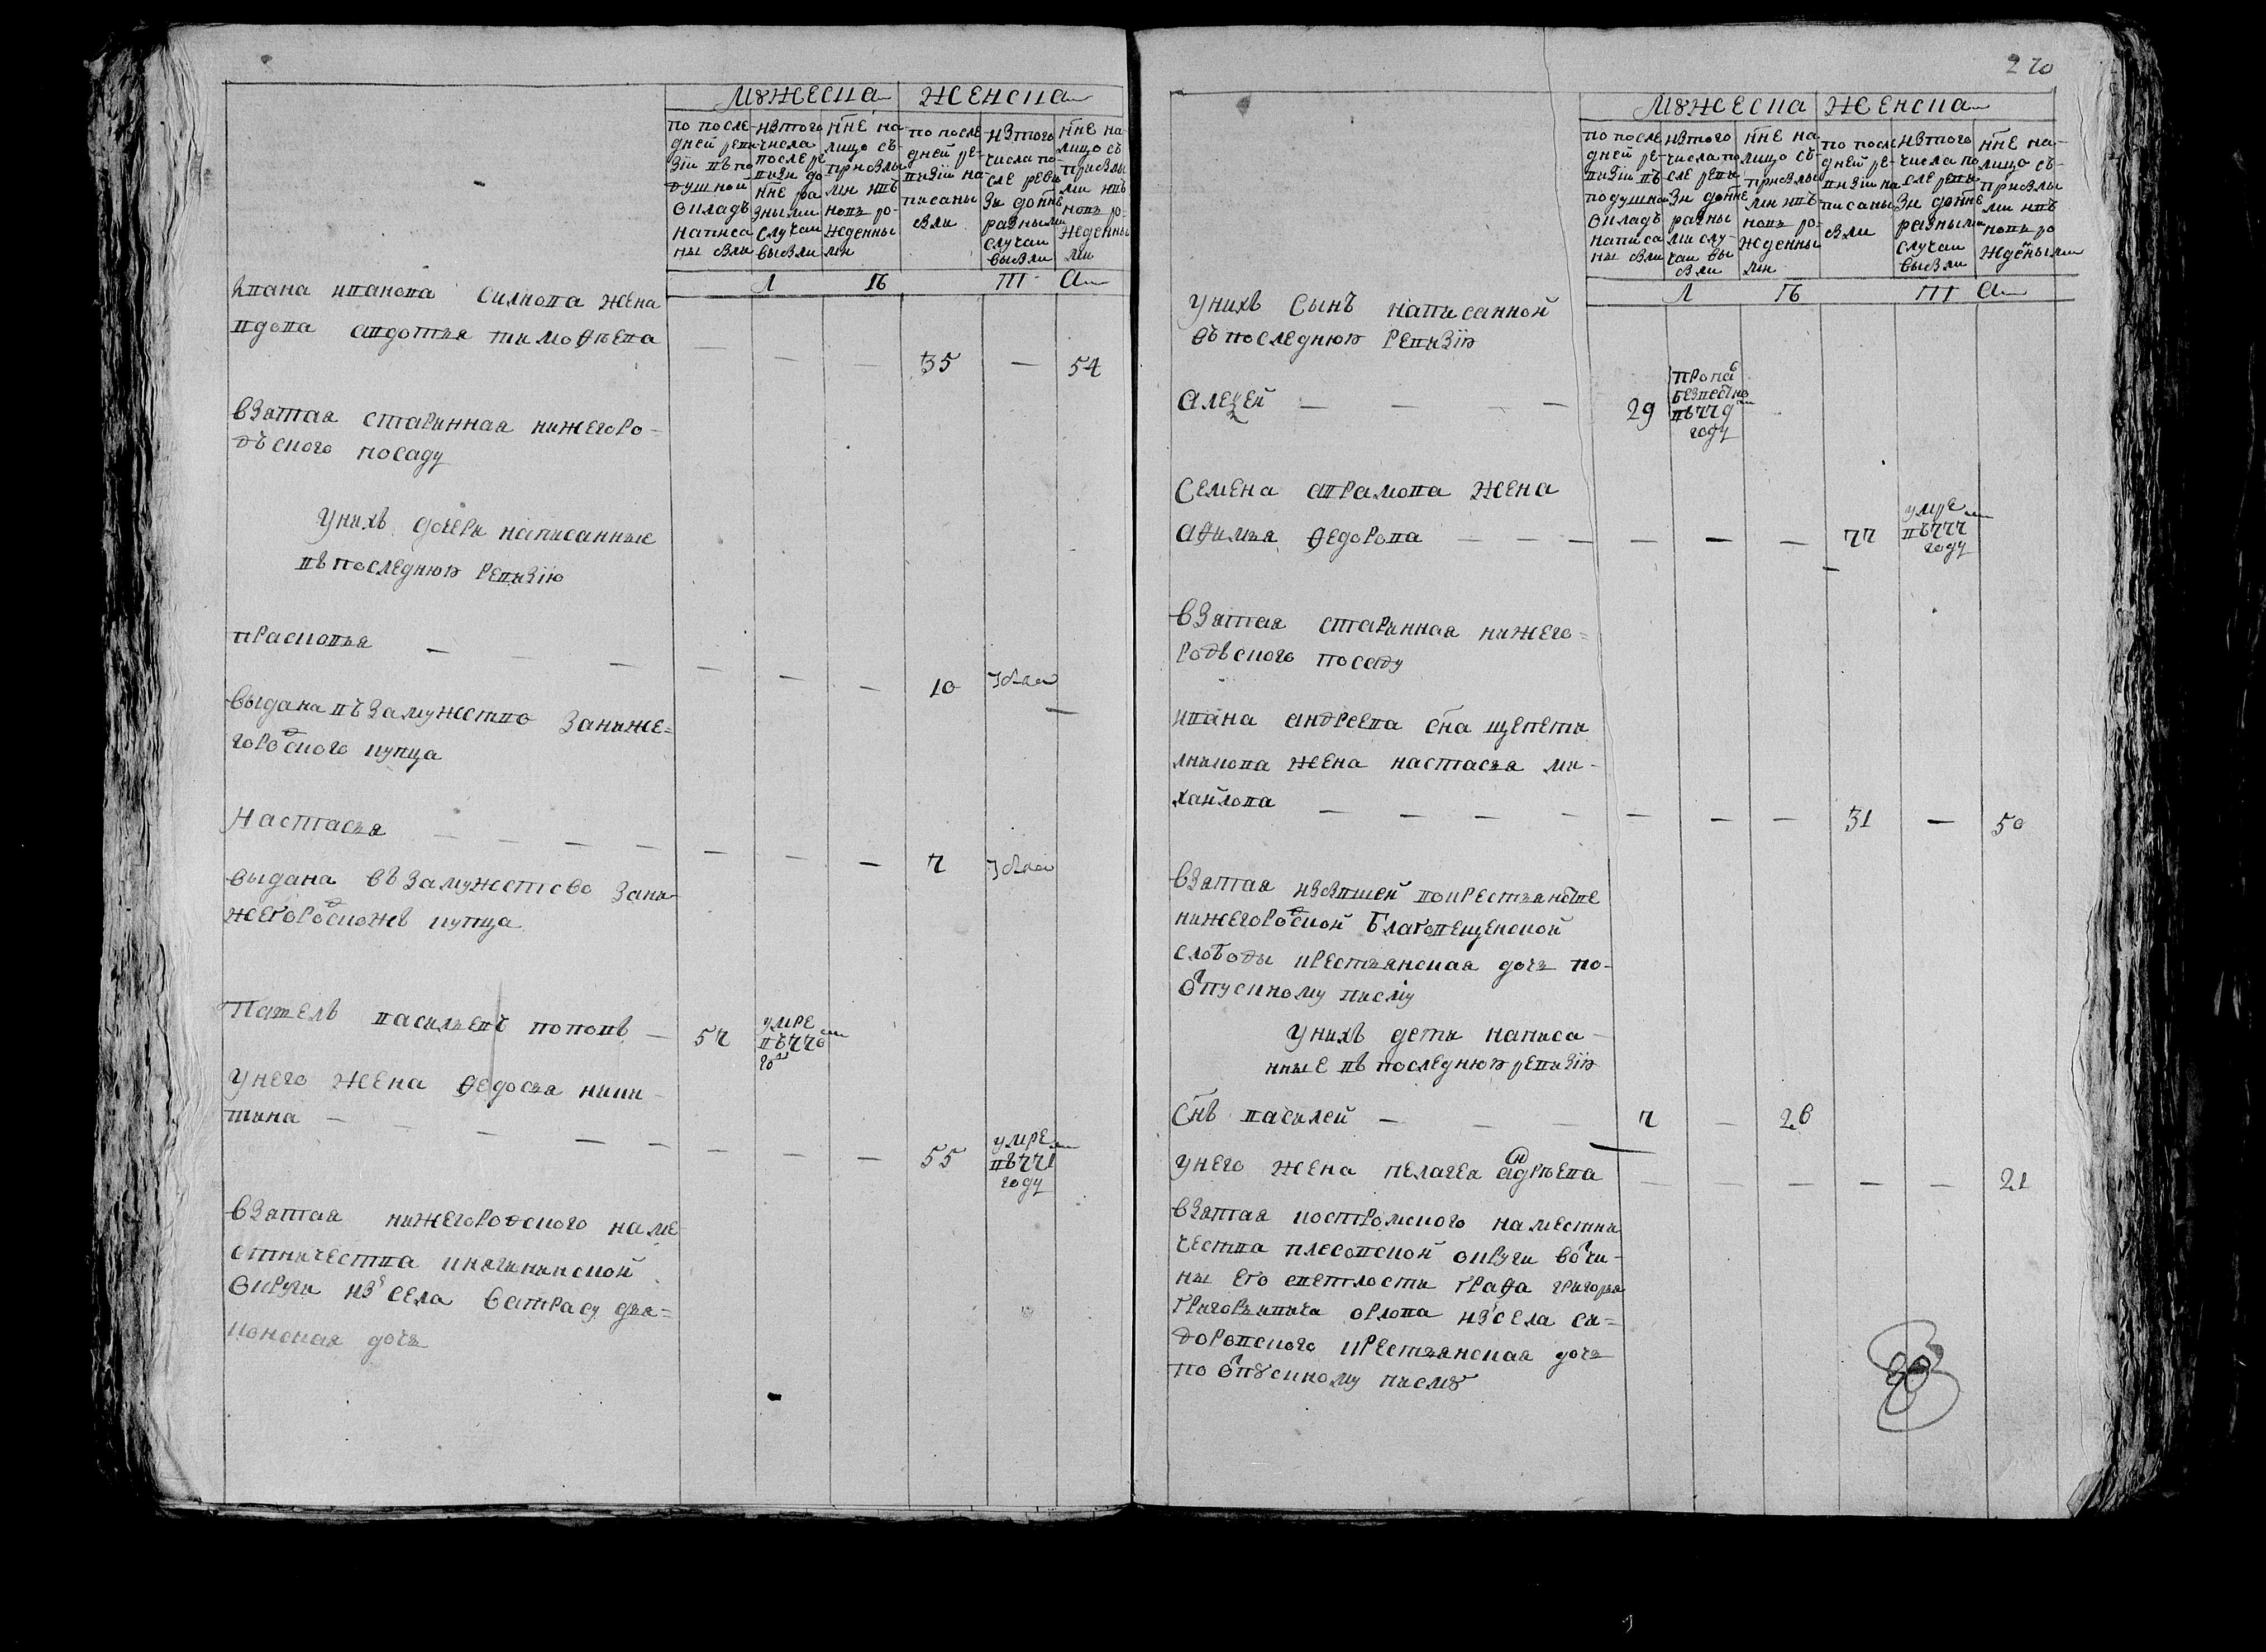 мужеска
женска
по после-
дней реви
зіи в по
душной
окладъ
написа
ны были
изтого
числа
после ре
визи до
нне ра
зными
случаи
выбыли
нне на
лицо съ
прибылы
ми итъ
новь ро-
жденны
ми
по после
дней ре-
визіи на-
писаны
были
изтого
числа по-
сле реви
зи донне
разными
случаи
выбыли
нне на
лицо съ
прибылы
ми итъ
новь ро-
жденны
ми
Л Ѣ Т А
Ивана иванова силкова жена
вдова авдотья тимофеева
35 54
Взятая старинная нижегоро-
дъского посаду
Уних дочери написанные
в последнюю ревизію
прасковья
10
выдана въ замужство заниже-
городского купца
Настасья
7
выдана въ замужство зани-
жегородскож купца
Павел васильевъ попов
57 умре
в 776м
го
Унего жена федосья ники-
тина
55 умре
в 771м
году
Взятая нижегородского наме
стничества княгининской
округи из села дья-
конская дочь
270
мужеска женска
по после
дней ре-
визіи въ
подушной
окладъ
написа
ны были
изтого
числа по
сле реви
зи донне
разны
ми слу-
чаи вы
были
нне на
лицо съ
прибылы
ми итъ
новь ро-
жденны
ми
по после
дней ре-
визіи на
писаны
были
изтого
числа по
сле реви
зи донне
разными
случаи
выбыли
нне на-
лицо съ
прибылы
ми итъ
новь ро
жденными
Л Ѣ Т А
Уних Сынъ написанной
въ последнюю Ревизію
алеѯей
29 пропа
безвестно
в 779м
году
Семена аврамова жена
афимья федорова
77 умре
в 777м
году
Взятая старинная нижего-
родского посаду
ивана андреева сна щепети
лникова жена настасья ми-
хайлова
31 50
Взятая избывшей вокрестьянстве
нижегородской Благовещенской
слободы крестьянская дочь по-
отпускному писму
Уних дети написа-
нные в последнюю ревизію
Снъ василей
7 26
Унего жена пелагея андреева
21
Взятая костромского наместни
чества плесовской округи вотчи-
ны его светлости графа григорья
григорьивича орлова из села си-
доровского крестьянская дочь
по отпускному писму